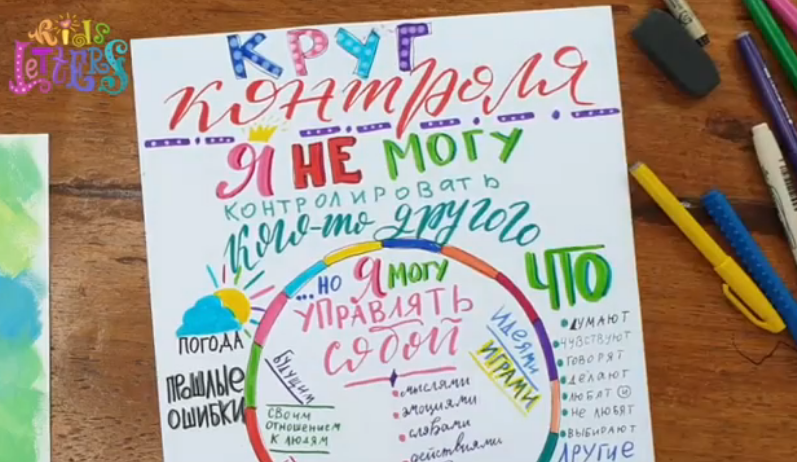 Kids
LeTTeRS
КРУГ
контроля
Я НЕ МОГУ
КОНТРОЛИРОВАТЬ
кого-то другого
...НО Я МОГУ
УПРАВЛЯТЬ
СОБОЙ
ПОГОДА
ПРОШЛЫЕ
ОШИБКИ
БУДУЩИМ
СВОИМ
ОТНОШЕНИЕМ
К ЛЮДЯМ
• мыслями
• эмоциями
• словами
• действиями
ИДЕЯМИ
ИГРАМИ
ЧТО
• ДУМАЮТ
• ЧУВСТВУЮТ
• ГОВОРЯТ
• ДЕЛАЮТ
• ЛЮБЯТ И
• НЕ ЛЮБЯТ
• ВЫБИРАЮТ
ДРУГИЕ